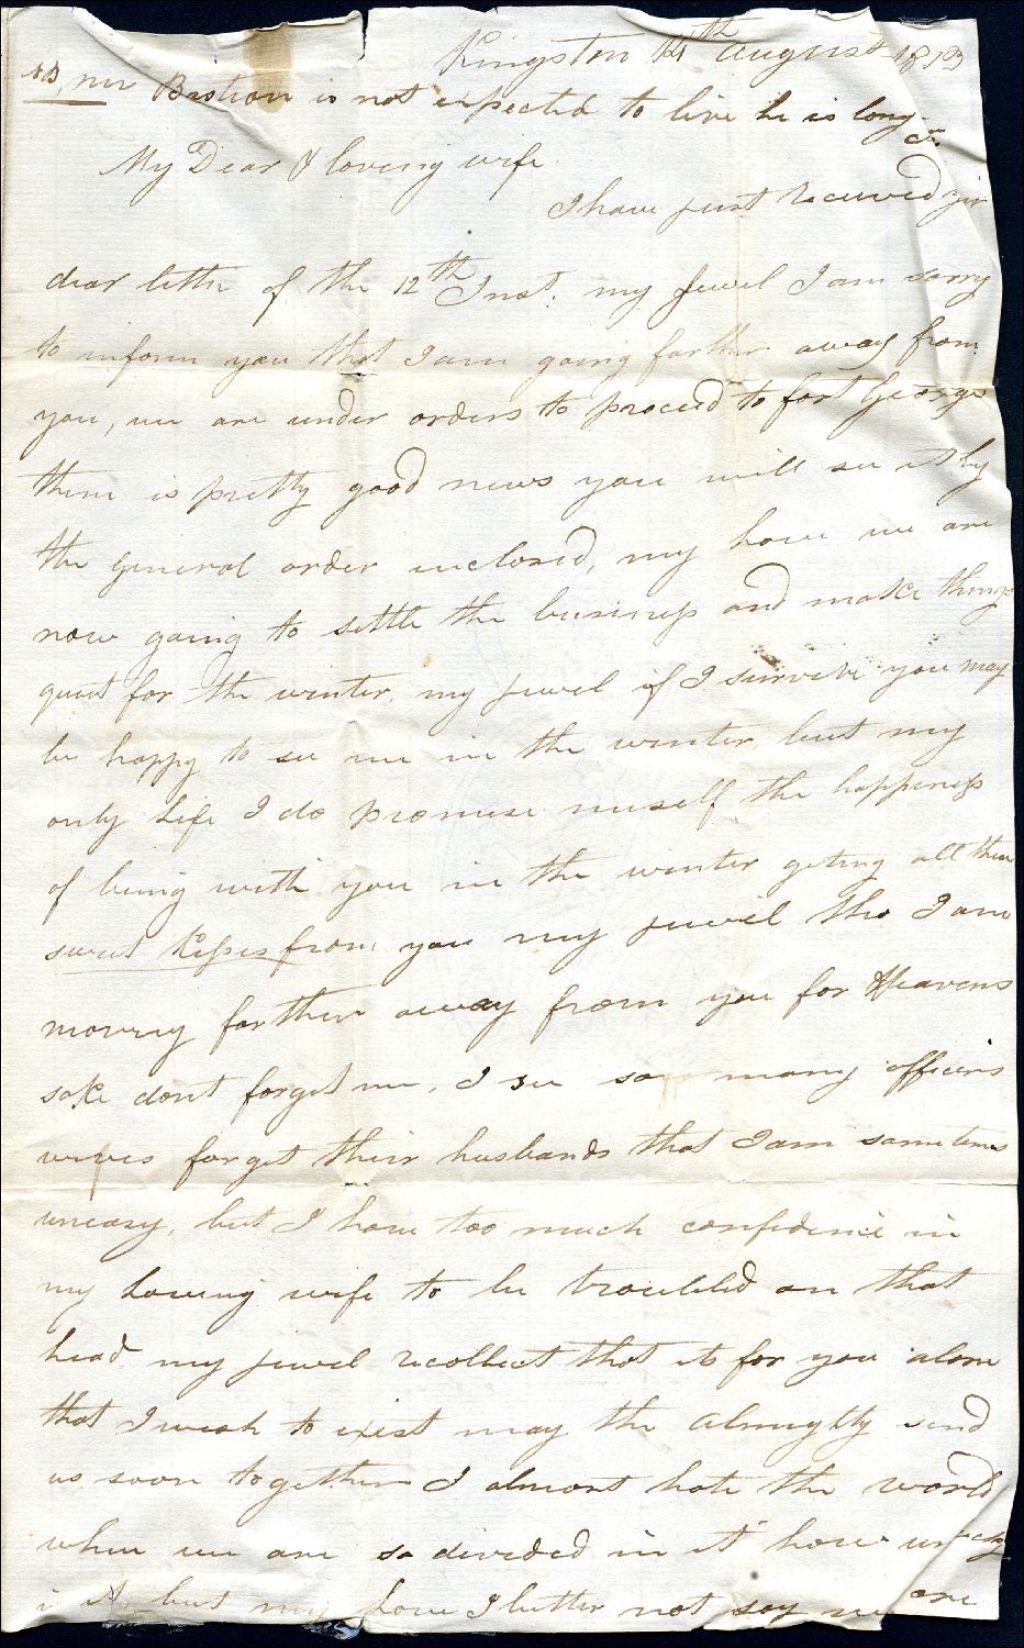 Kingston 14th August 1813
NB, Mr Bastion is not expected to live he is long
My Dear & loving wife
I have just received yr
dear letter of the 12th Inst. my Jewel I am sorry
to inform you that I am going farther away from
you, we are under orders to proceed to fort George
there is pretty good news you will see it by
the General order enclosed, my love we are
now going to settle the business and make things
quiet for the winter. my jewel if I survive you may
be happy to see me in the winter but my
only Life I do promise miself the happiness
of being with you in the winter geting all them
sweet kisses from you my jewel tho I am
moving farther away from you for Heavens
sake dont forget me, I see so many officers
wives forget their husbands that I am sometimes
uneasy, but I have too much confidence in
my Loving wife to be troubled on that
head my jewel recollect that its for you alone
that I wish to exist may the almighty send
us soon together I almost hate the world
when we are so divided in it how
is it, but my love I better not say we are